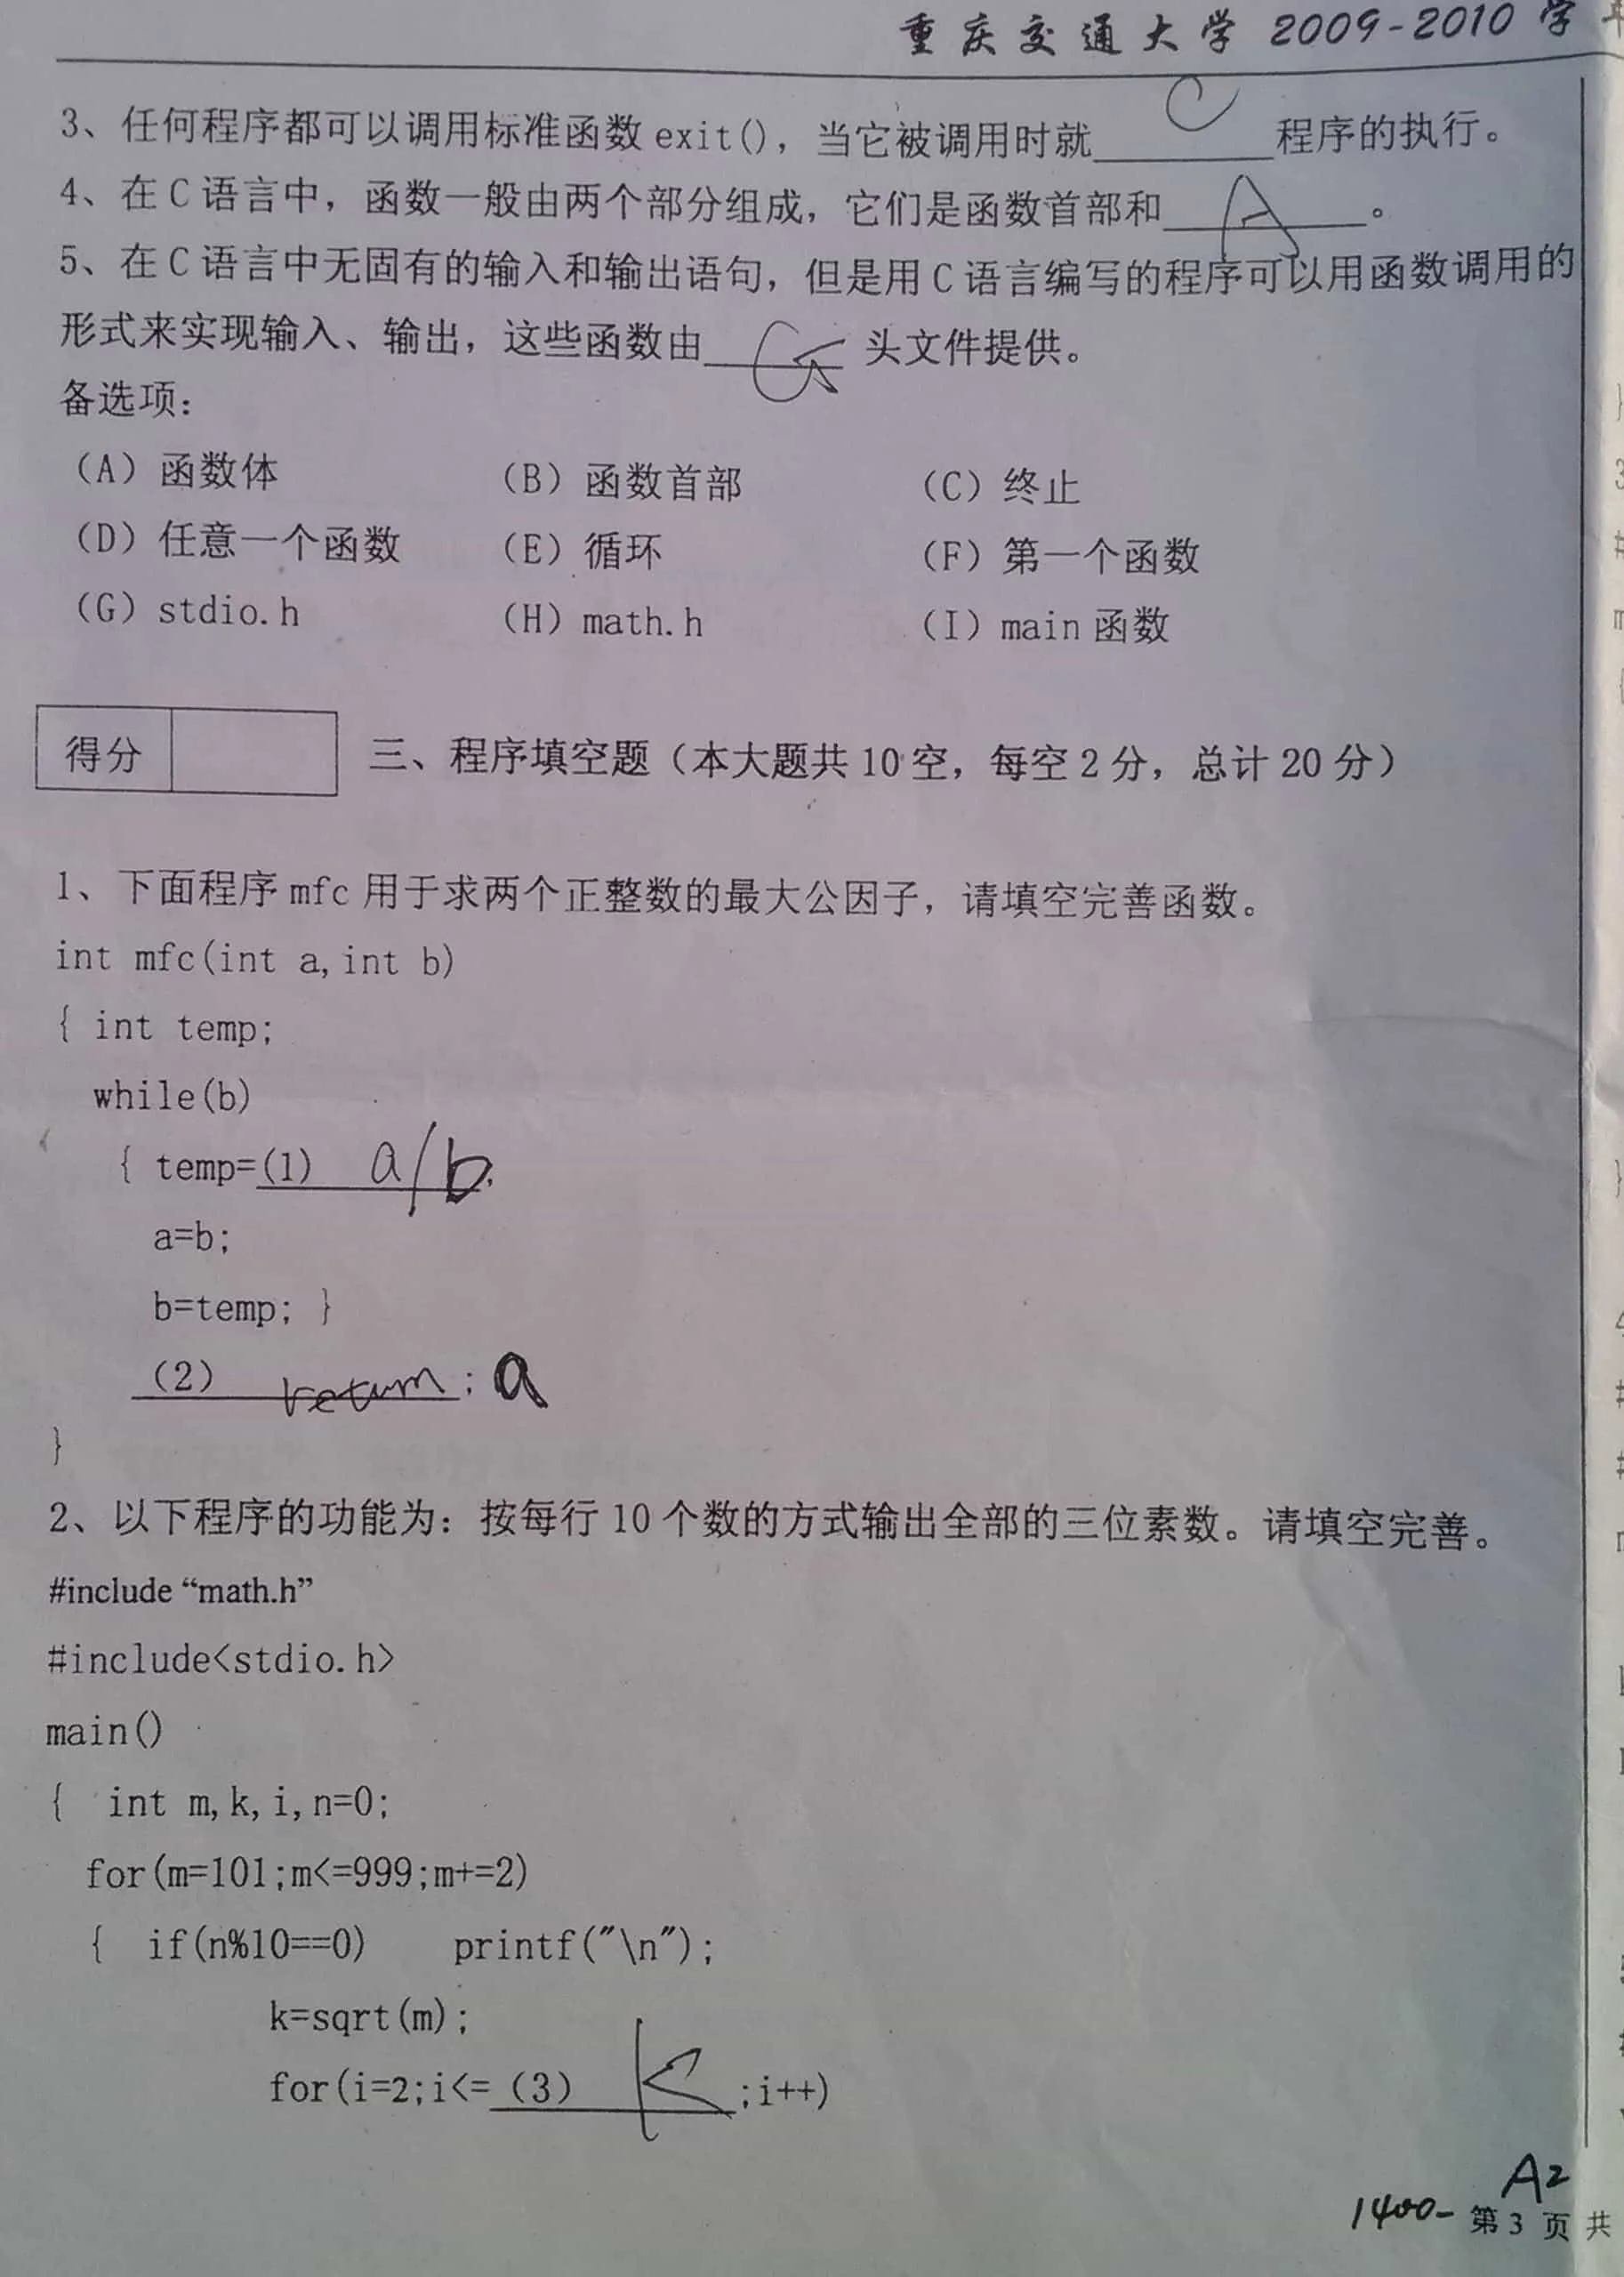 重庆交通大学 2009-2010 学
3、任何程序都可以调用标准函数 exit()，当它被调用时就 C 程序的执行。
4、在 C 语言中，函数一般由两个部分组成，它们是函数首部和 A 。
5、在 C 语言中无固有的输入和输出语句，但是用 C 语言编写的程序可以用函数调用的
形式来实现输入、输出，这些函数由 G 头文件提供。
备选项：
（A）函数体 （B）函数首部 （C）终止
（D）任意一个函数 （E）循环 （F）第一个函数
（G）stdio.h （H）math.h （I）main 函数
得分 三、程序填空题（本大题共 10 空，每空 2 分，总计 20 分）
1、下面程序 mfc 用于求两个正整数的最大公因子，请填空完善函数。
int mfc(int a,int b)
{ int temp;
while(b)
{ temp=(1) a/b;
a=b;
b=temp; }
（2） return ; a
}
2、以下程序的功能为：按每行 10 个数的方式输出全部的三位素数。请填空完善。
#include “math.h”
#include<stdio.h>
main()
{ int m,k,i,n=0;
for(m=101;m<=999;m+=2)
{ if(n%10==0) printf("\n");
k=sqrt(m);
for(i=2;i<=（3） K ;i++)
A2
1400- 第 3 页 共